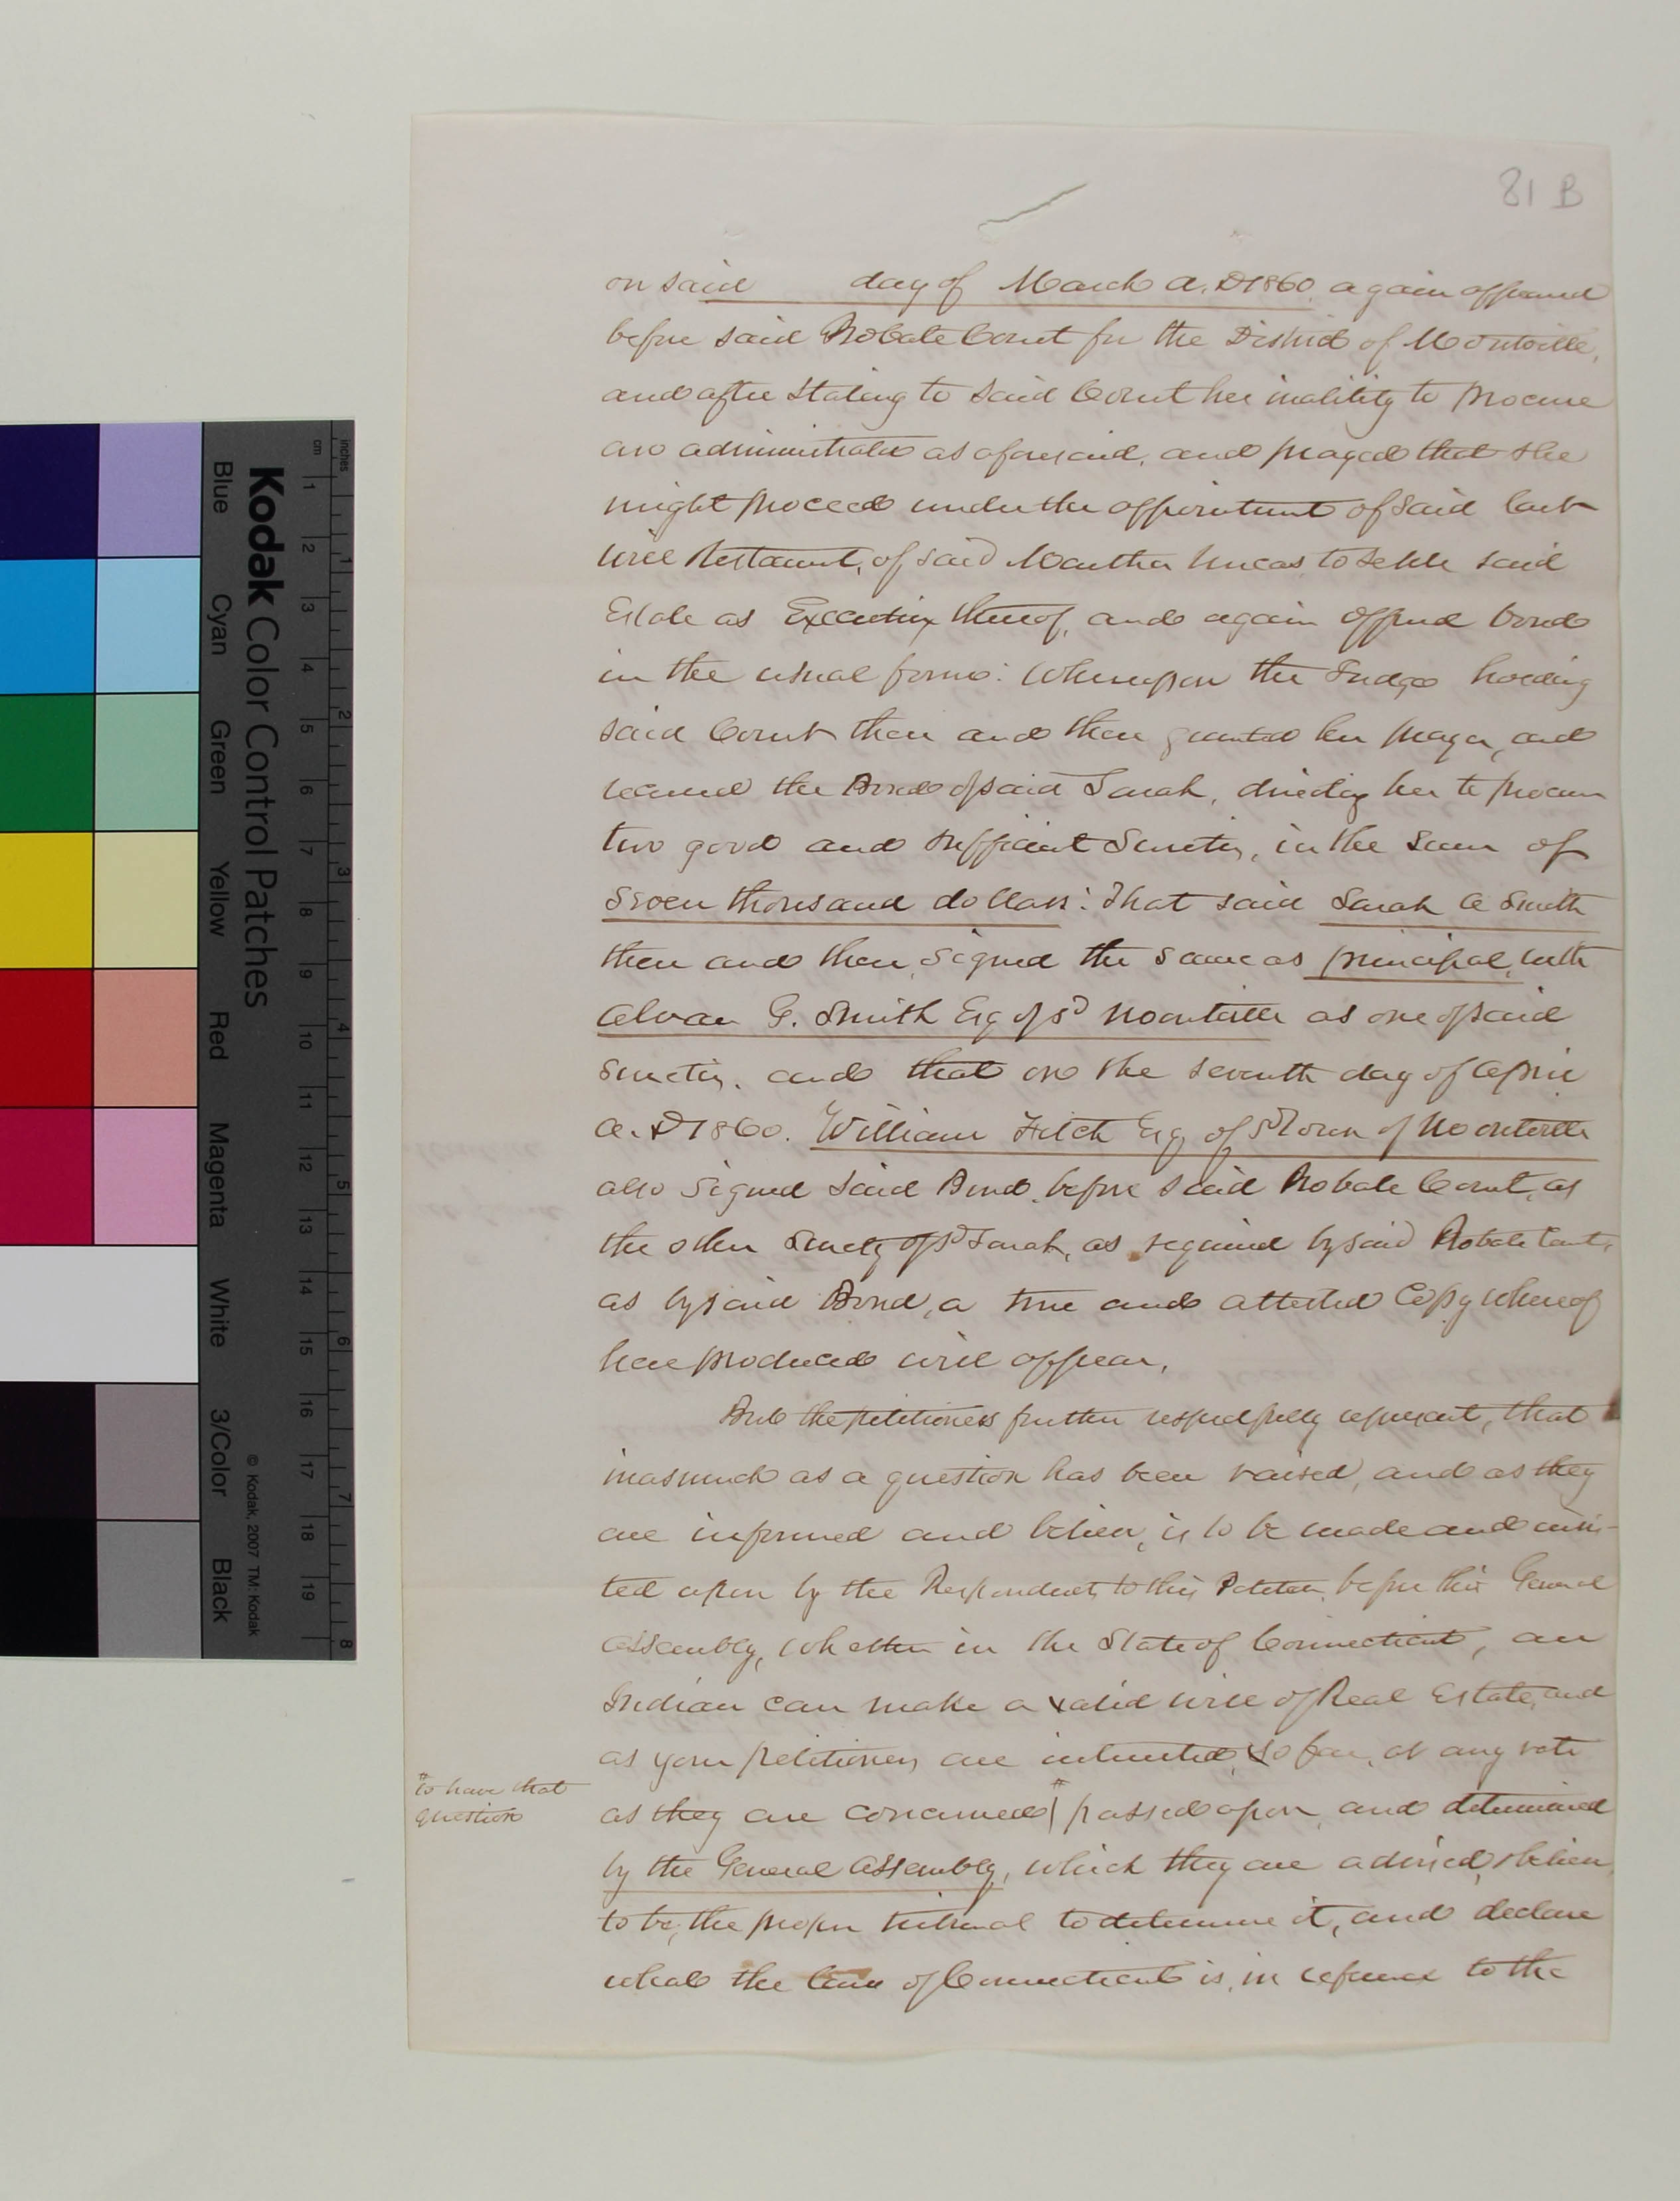 81 B
on said day of March A.D 1860. again appeared
before said Probate Court for the District of Montville,
and after stating to said Court her inability to procure
an administrator as aforesaid, and prayed that she
might proceed under the appointment of said last
will & testament, of said Martha Uncas, to settle said
Estate as Executrix thereof, and again offered bond
in the usual form: Whereupon the Judge holding
said Court then and there granted her prayer, and
received the Bond of said Sarah, directing her to procure
two good and sufficient Sureties, in the sum of
Seven thousand dollars: That said Sarah A Smith
then and there signed the same as principal, with
Alvan G. Smith Esq of sd Montville as one of said
Sureties. and that on the seventh day of April
A.D 1860. William Fitch Esq of sd Town of Montville
also signed said Bond before said Probate Court, as
the other Surety of sd Sarah, as required by said Probate Court,
as by said Bond, a true and attested Copy whereof
here produced will appear.
And the petitioners further respectfully represent, that
inasmuch as a question has been raised, and as they
are informed and believe, is to be made and insis-
ted upon by the Respondents to this Petition, before this General
Assembly, whether in the State of Connecticut, an
Indian can make a valid will of Real Estate, and
as your petitioners are interested, so far, at any rate
as they are concerned passed upon, and determined
# to have that
question
by the General Assembly, which they are advised, & believe
to be, the proper tribunal to determine it, and declare
what the law of Connecticut is, in reference to the
inches
cm
1 2 3 4 5 6 7 8
1 2 3 4 5 6 7 8 9 10 11 12 13 14 15 16 17 18 19
Kodak Color Control Patches
© Kodak, 2007 TM: Kodak
Blue Cyan Green Yellow Red Magenta White 3/Color Black